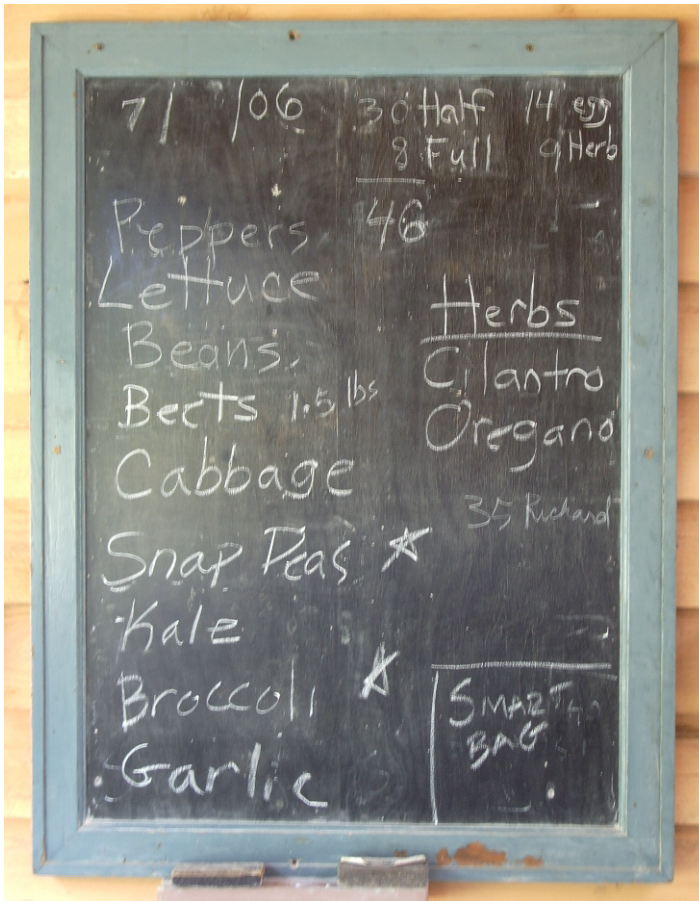 7/ /06
30 Half 14 egg
8 Full 9 Herb
46
Peppers
Lettuce
Beans.
Beets 1.5 lbs
Cabbage
Snap Peas ☆
Kale
Broccoli ☆
Garlic
Herbs
Cilantro
Oregano
35 Richard
SMART
BAG